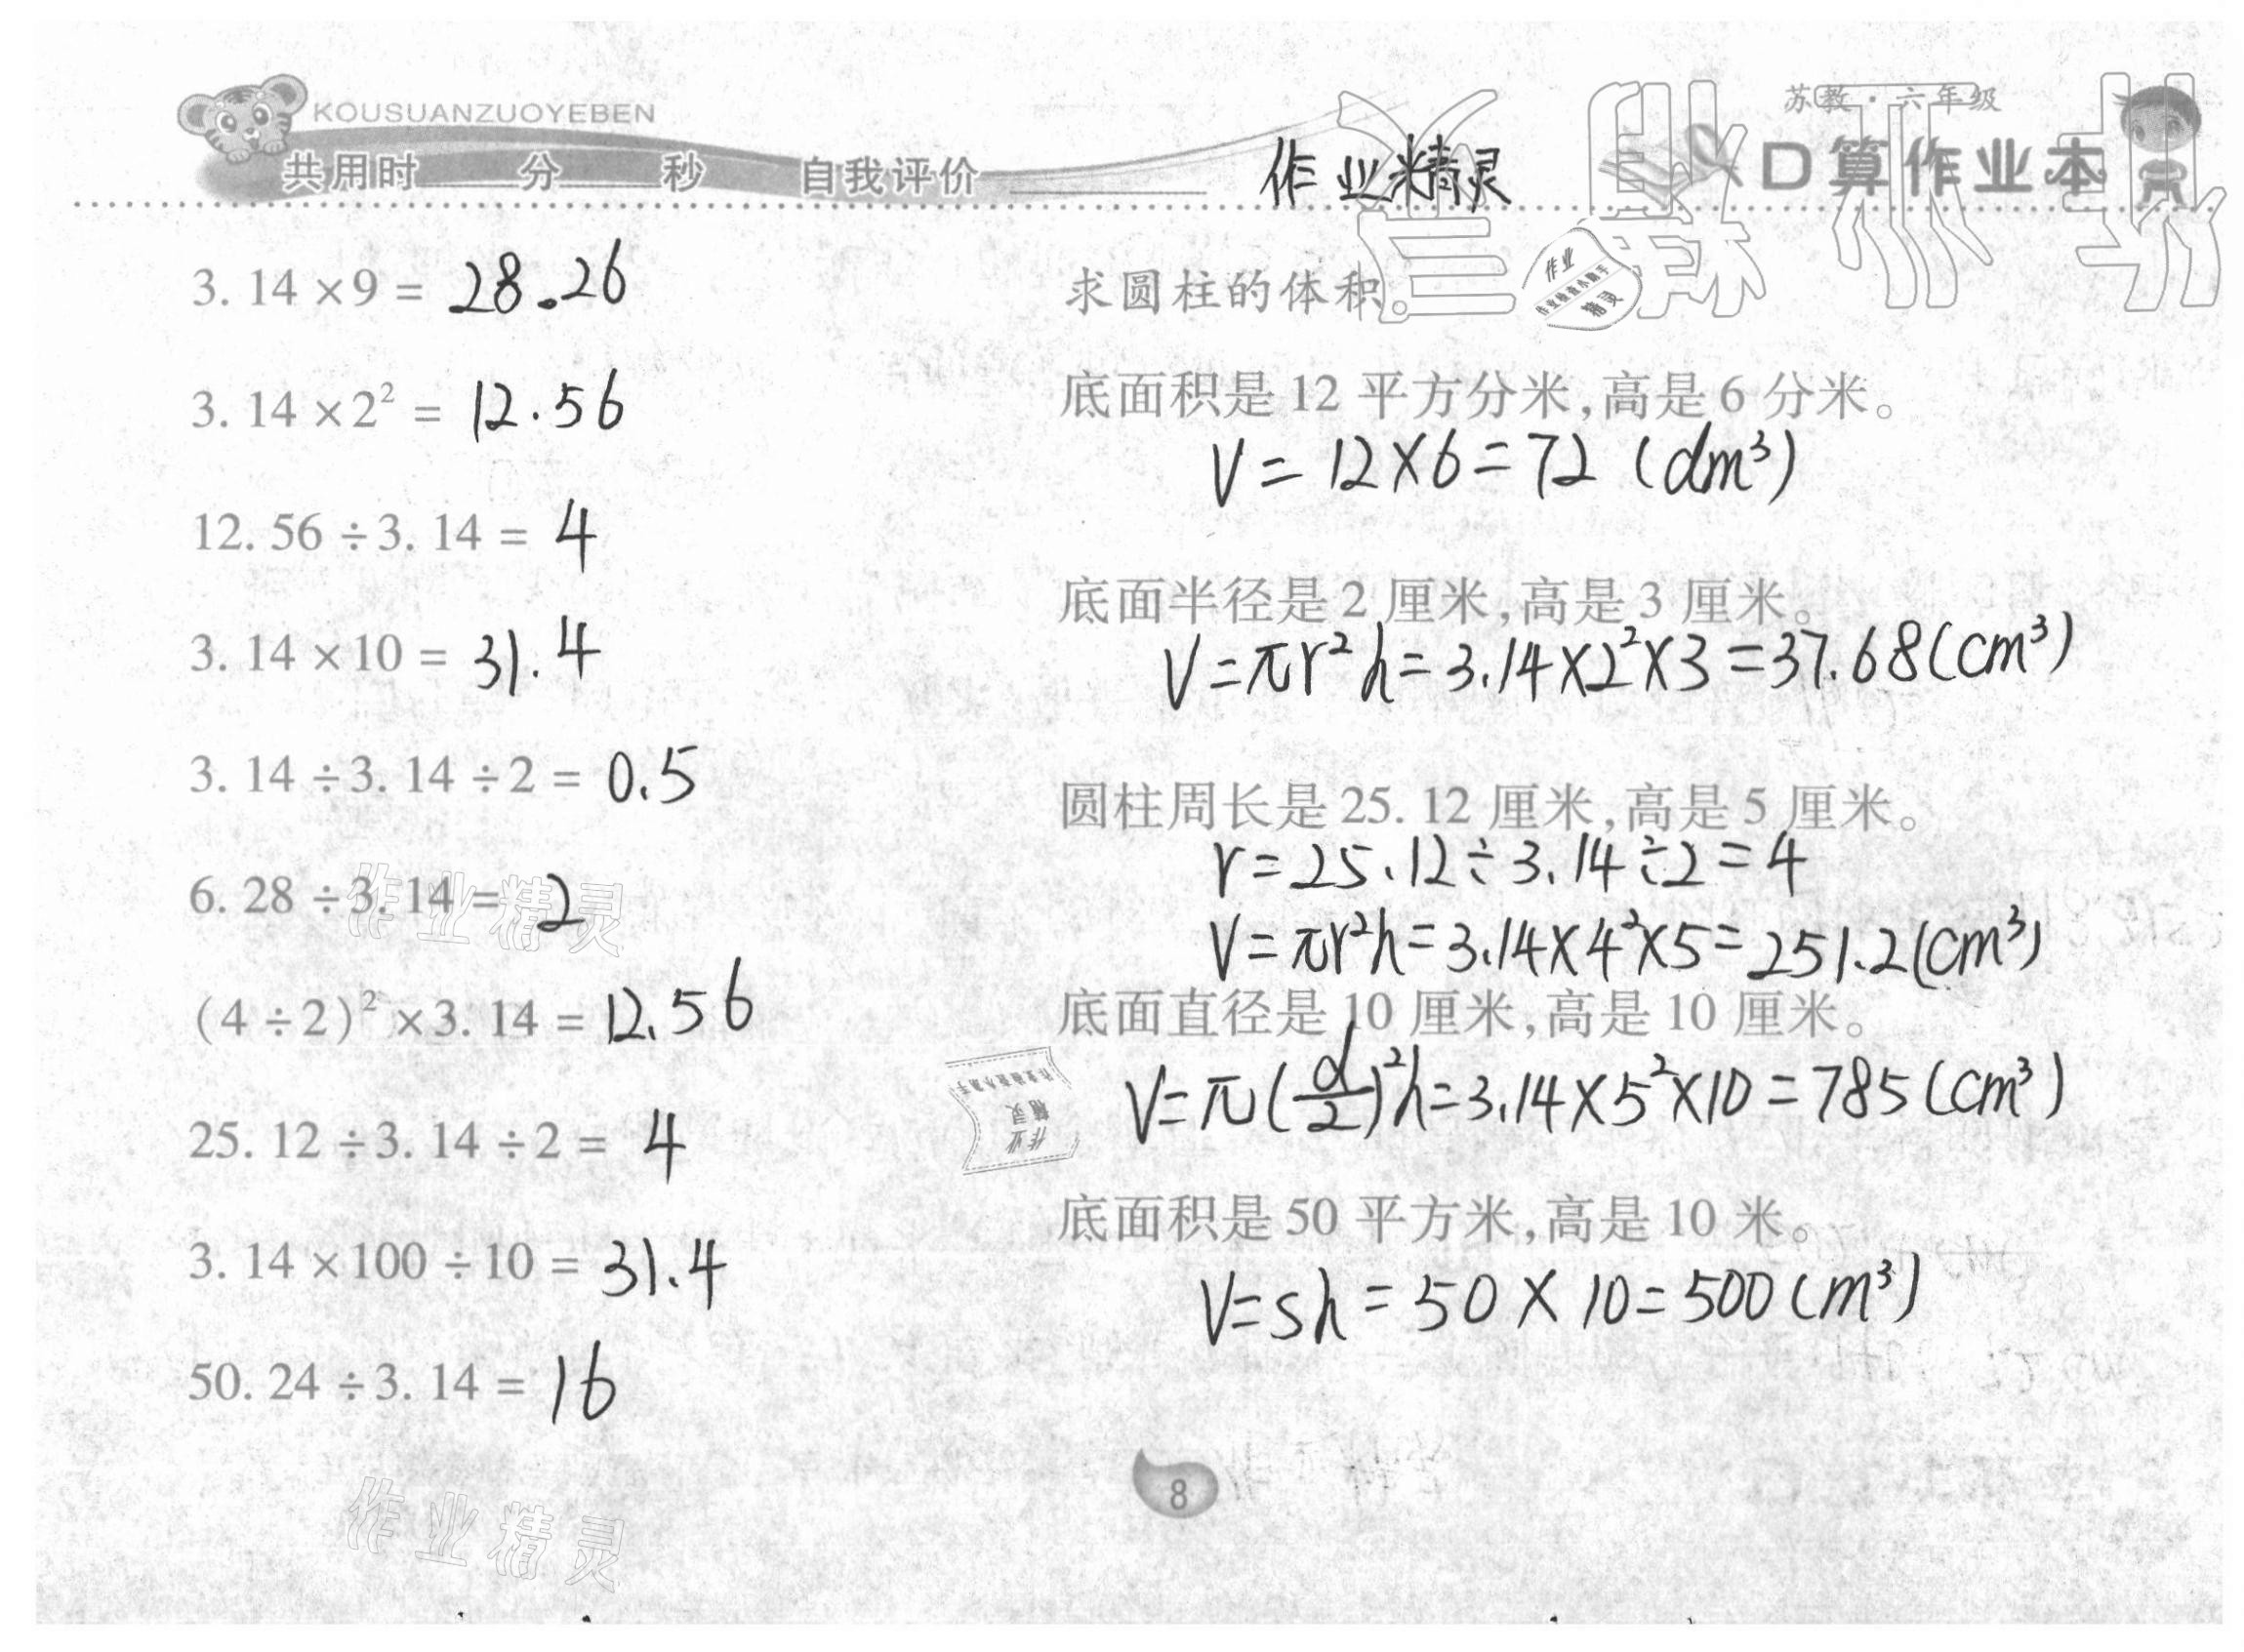 KOUSUANZUOYEBEN
共用时____分____秒 自我评价________
作业精灵
苏教·六年级
口算作业本
3.14×9= 28.26
3.14×2²= 12.56
12.56÷3.14= 4
3.14×10= 31.4
3.14÷3.14÷2= 0.5
6.28÷3.14= 2
(4÷2)²×3.14= 12.56
25.12÷3.14÷2= 4
3.14×100÷10= 31.4
50.24÷3.14= 16
作业精灵
作业精灵
求圆柱的体积。
作业
作业检查小助手
精灵
底面积是12平方分米,高是6分米。
V=12×6=72(dm³)
底面半径是2厘米,高是3厘米。
V=πr²h=3.14×2²×3=37.68(cm³)
圆柱周长是25.12厘米,高是5厘米。
r=25.12÷3.14÷2=4
V=πr²h=3.14×4²×5=251.2(cm³)
底面直径是10厘米,高是10厘米。
V=π(d/2)²h=3.14×5²×10=785(cm³)
作业
精灵
底面积是50平方米,高是10米。
V=sh=50×10=500(m³)
8